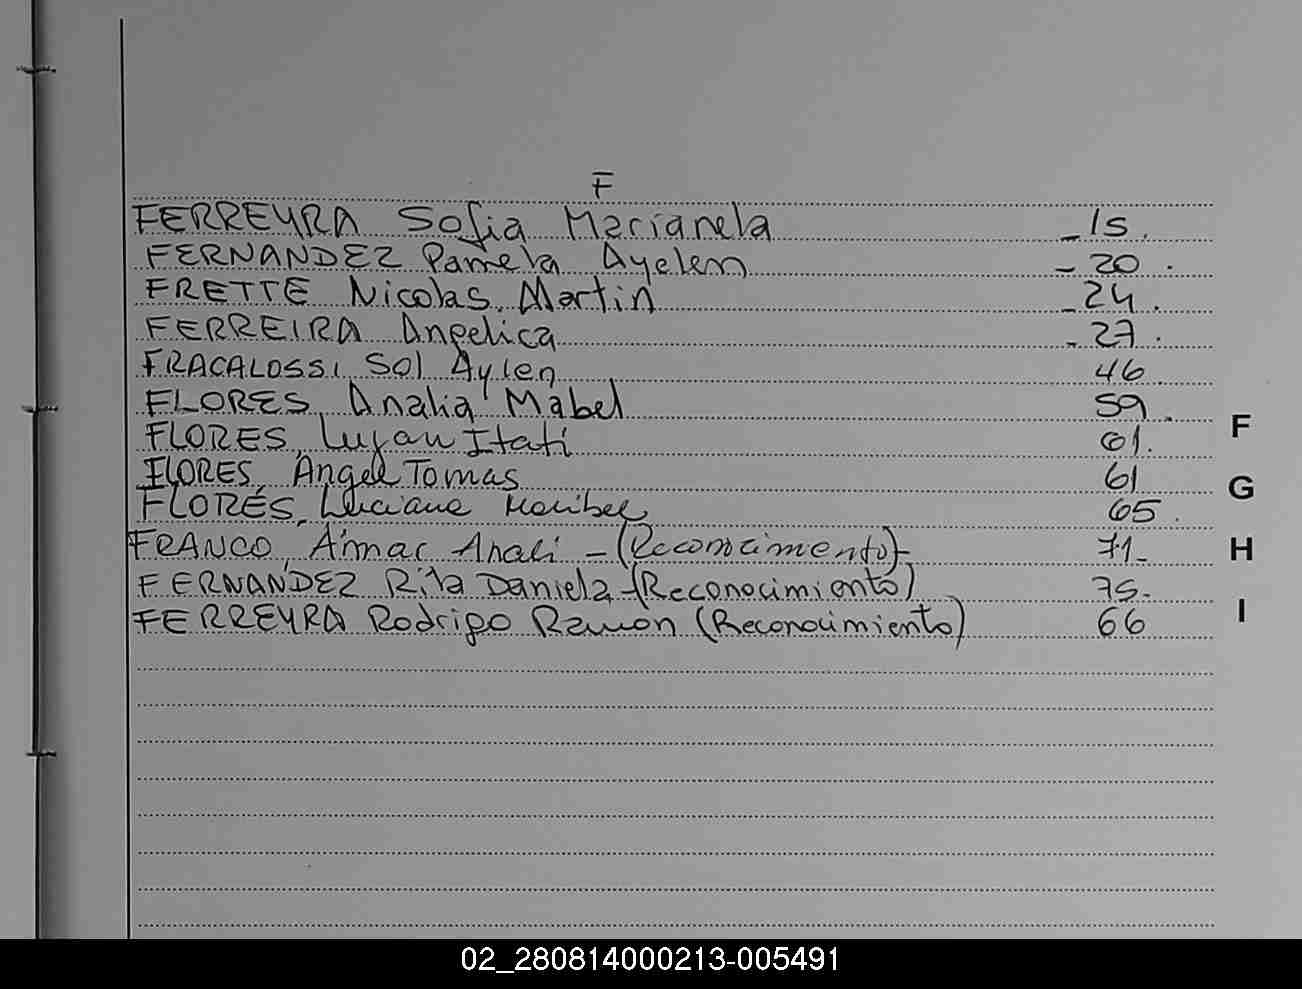 F
FERREYRA Sofia Marianela - 15.
FERNANDEZ Pamela Ayelen - 20.
FRETTE Nicolas Martin - 24.
FERREIRA Angelica - 27.
FRACALOSSI Sol Aylen 46
FLORES, Analia Mabel 59.
FLORES, Lujan Itati 61.
FLORES, Angel Tomas 61
FLORES, Luciana Maribel 65.
FRANCO, Aimar Anali - (Reconocimiento)- 71-
FERNANDEZ Rita Daniela -(Reconocimiento) 75-
FERREYRA Rodrigo Ramon (Reconocimiento) 66
F
G
H
I
02_280814000213-005491